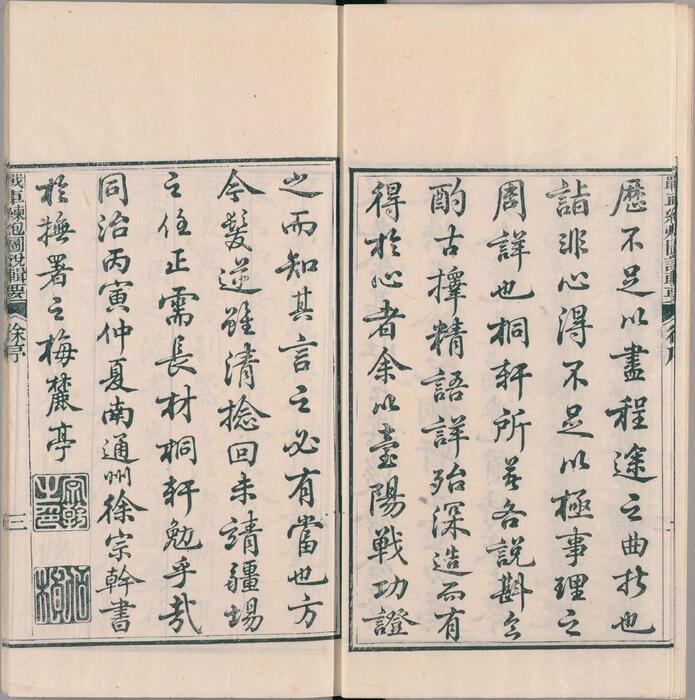 歷不足以盡程途之曲折也
詣非心得不足以極事理之
周詳也桐軒所著各說斟今
酌古擇精語詳殆深造而有
得於心者余以臺陽戰功證
之而知其言之必有當也方
今髮逆雖清捻回未靖疆場
之任正需長材桐軒勉乎哉
同治丙寅仲夏南通州徐宗幹書
於撫署之梅麓亭
宗幹之印
戰車練炮圖說輯要
徐序
三